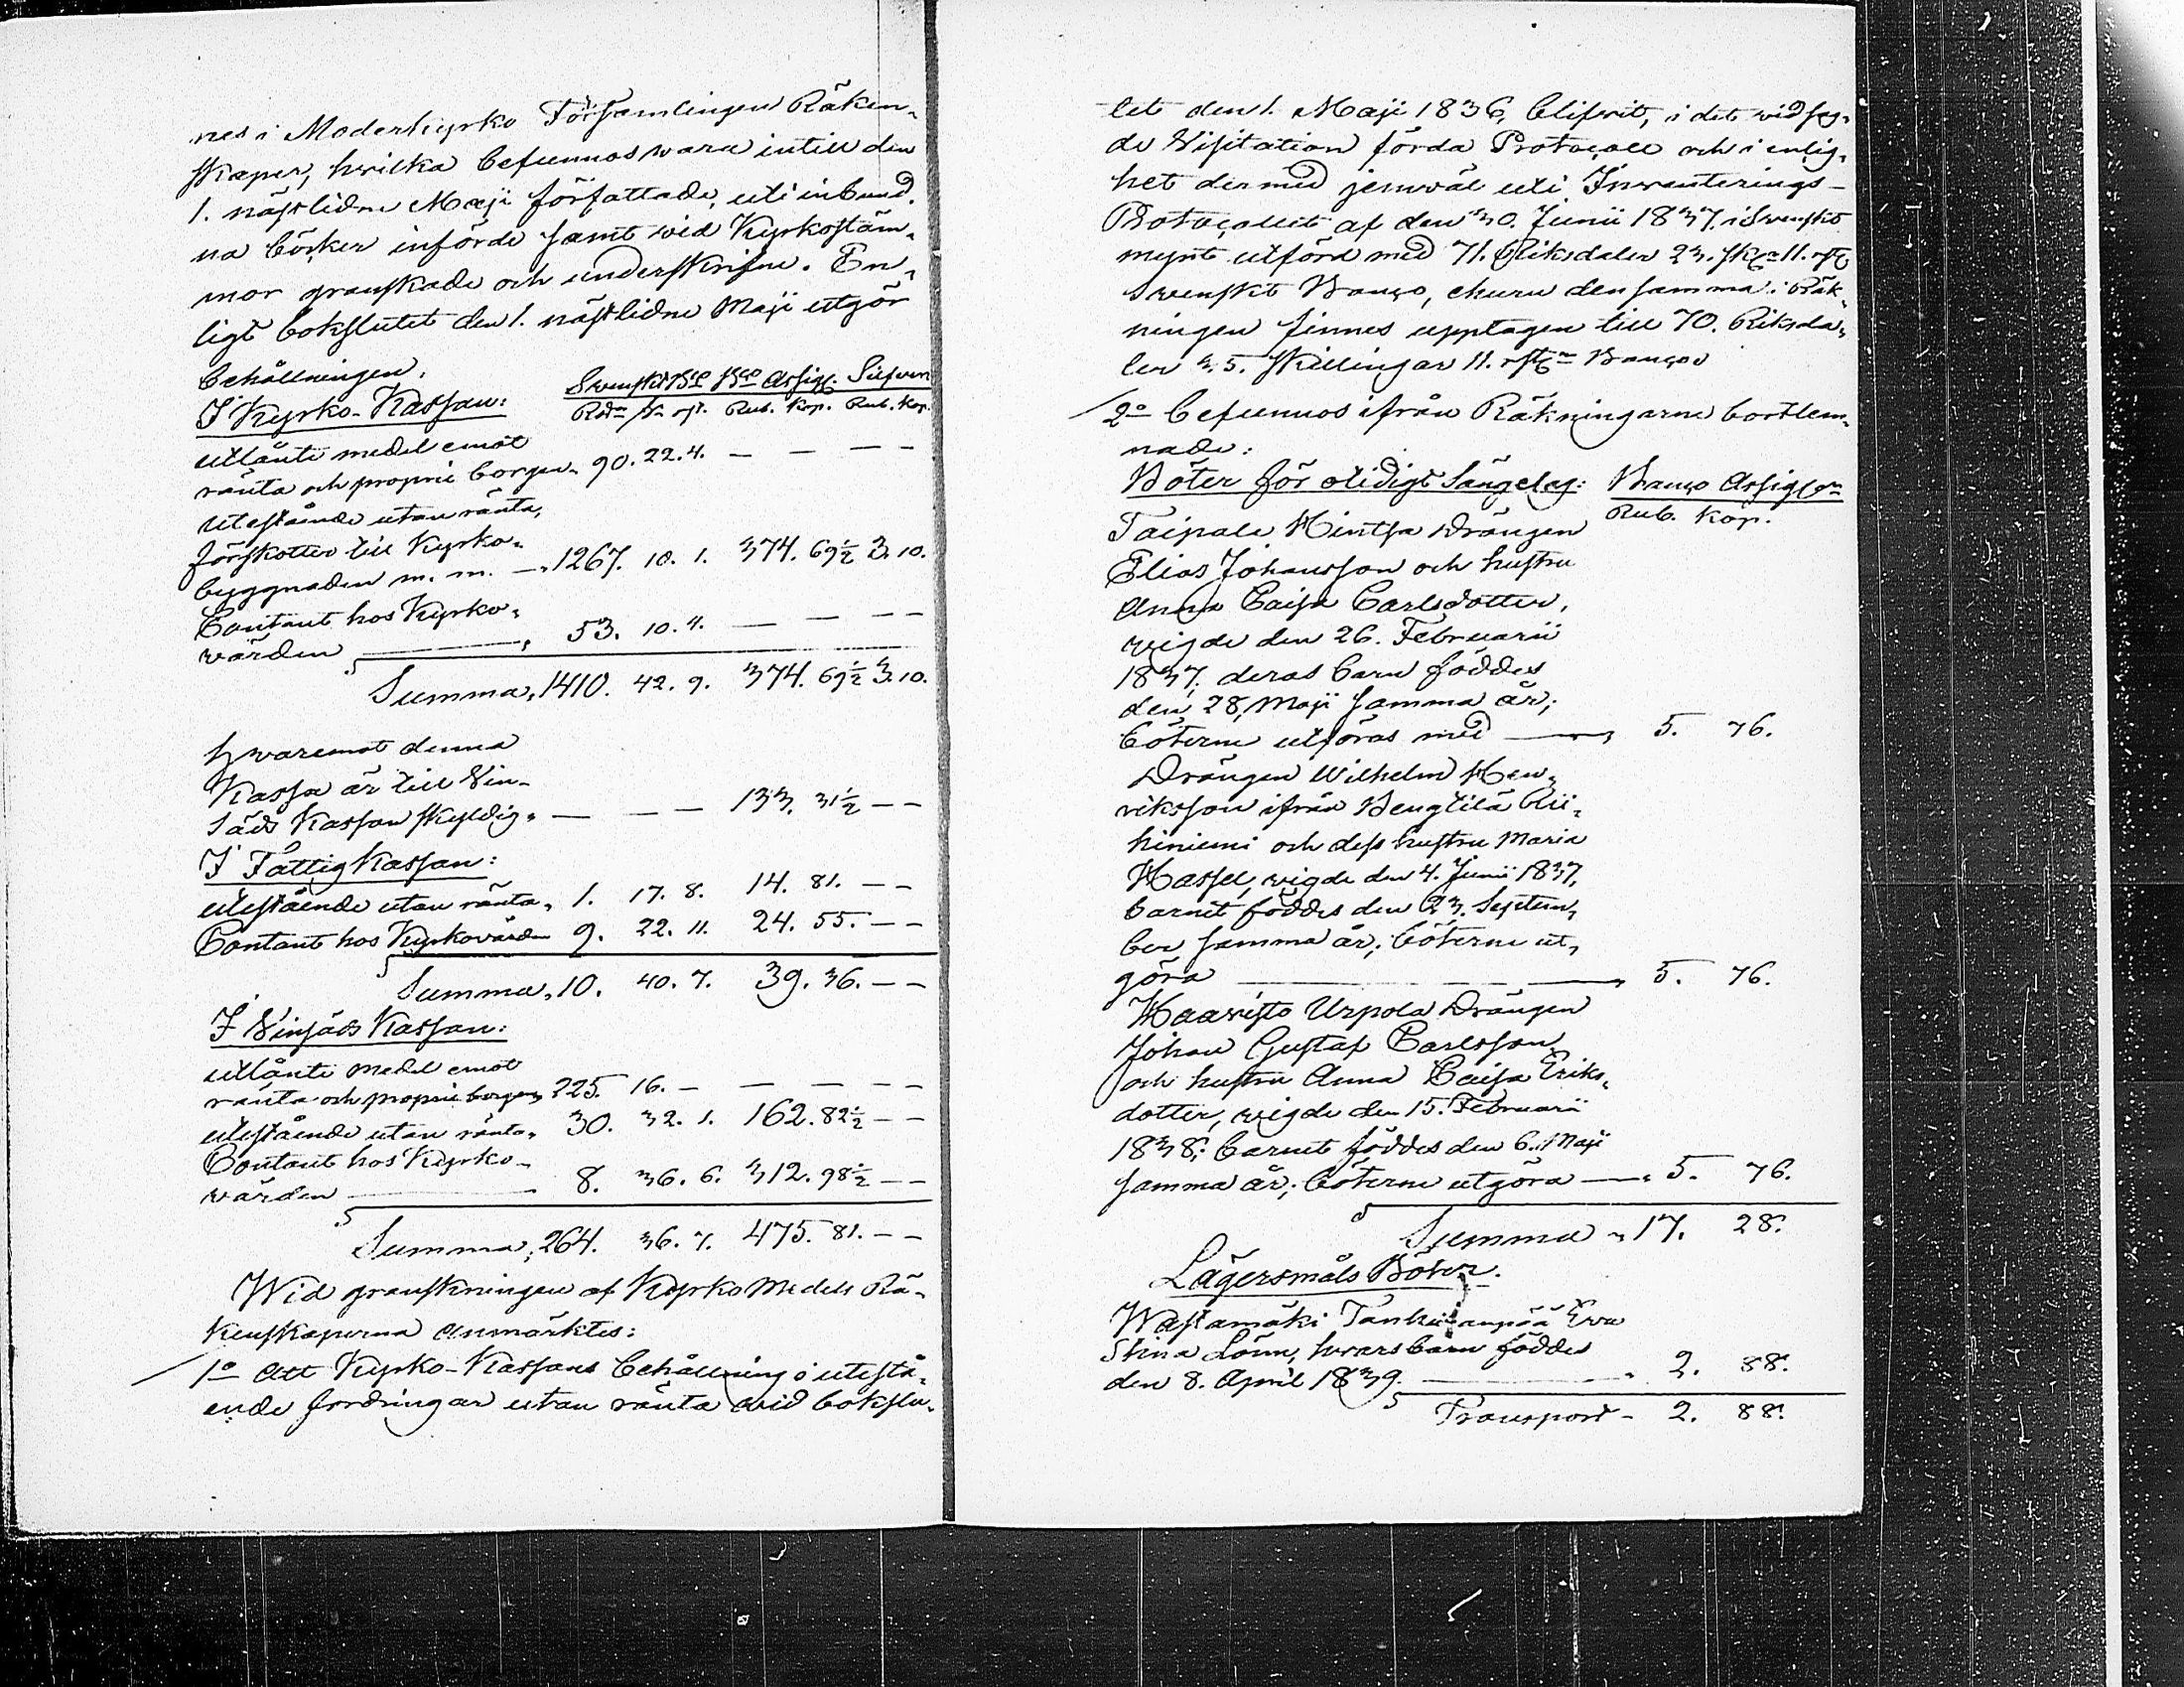 nes i Moderkyrko Församlingens Räken-
skaper, hvilka befunnos vara intill den
1. nästlidne Maji författade, uti inbund-
na böcker införde samt vid Kyrkostäm-
mor granskade och underskrifne. En-
ligt bokslutet den 1. näst lidne Maji utgör
behållningen.
I Kyrko-Kassan: Svenskt Bco Bco Assign. Silfver
Rdr sk. rst. Rub. Kop. Rub. Kop.
utlånte medel emot
ränta och proprie borgen „ 90. 22. 4. — — — —
utestående utan ränta,
förskotter till Kyrko-
byggnaden m. m. — „ 1267. 10. 1. 374. 69½ 3. 10.
Contant hos Kyrko-
värden — „ 53. 10. 4. — — — —
Summa „ 1410. 42. 9. 374. 69½ 3. 10.
hvaremot denna
Kassa är till Vin-
säds Kassan skyldig „ — — — 133. 31½ — —
I Fattig Kassan:
utestående utan ränta „ 1. 17. 8. 14. 81. — —
Contant hos Kyrkovärden 9. 22. 11. 24. 55. — —
Summa „ 10. 40. 7. 39. 36. — —
I Vinsäds Kassan:
utlånte medel emot
ränta och proprie borgen „ 225. 16. — — — — —
utestående utan ränta „ 30. 32. 1. 162. 82½ — —
Contant hos Kyrko-
värden — 8. 36. 6. 312. 98½ — —
Summa „ 264. 36. 7. 475. 81. — —
Wid granskningen af Kyrko Medels Rä-
kenskaperna anmärktes:
1o Att Kyrko-Kassans behållning i utestå-
ende fordringar utan ränta vid bokslu-
tet den 1. Maji 1836, blifvit, i det vid sag-
de Visitation förda Protocoll och i enlig-
het dermed jemväl uti Inventerings-
Protocollet af den 30. Junii 1837. i Svenskt
mynt utförd med 71. Riksdaler 23. sk. 11. rst.
Svenskt Banco, ehuru densamma i Räk-
ningen finnes upptagen till 70. Riksda-
ler 35. Skillingar 11. rst. Banco
2o befunnos ifrån Räkningarne bortlem-
nade:
Böter för otidigt Sängelag: Banco Assign.
Rub. Kop.
Taipale Hintsa Drängen
Elias Johansson och hustru
Anna Caisa Carlsdotter,
vigde den 26. Februarii
1837, deras barn föddes
den 28. Maji samma år;
böterne utföras med — „ 5. 76.
Drängen Wilhelm Hen-
riksson ifrån Bengtilä Rii-
hiniemi och dess hustru Maria
Hassel, vigde den 4. Junii 1837,
barnet föddes den 23. Septem-
ber samma år; böterne ut-
göra — „ 5. 76.
Haavisto Urpola Drängen
Johan Gustaf Carlsson
och hustru Anna Caisa Eriks-
dotter, vigde den 15. Februarii
1838; barnet föddes den 6. Maji
samma år; böterne utgöra — „ 5. 76.
Summa „ 17. 28.
Lägersmåls Böter.
Eva
Stina Lönn, hvars barn föddes
den 8. April 1839. — „ 2. 88.
Transport - 2. 88.